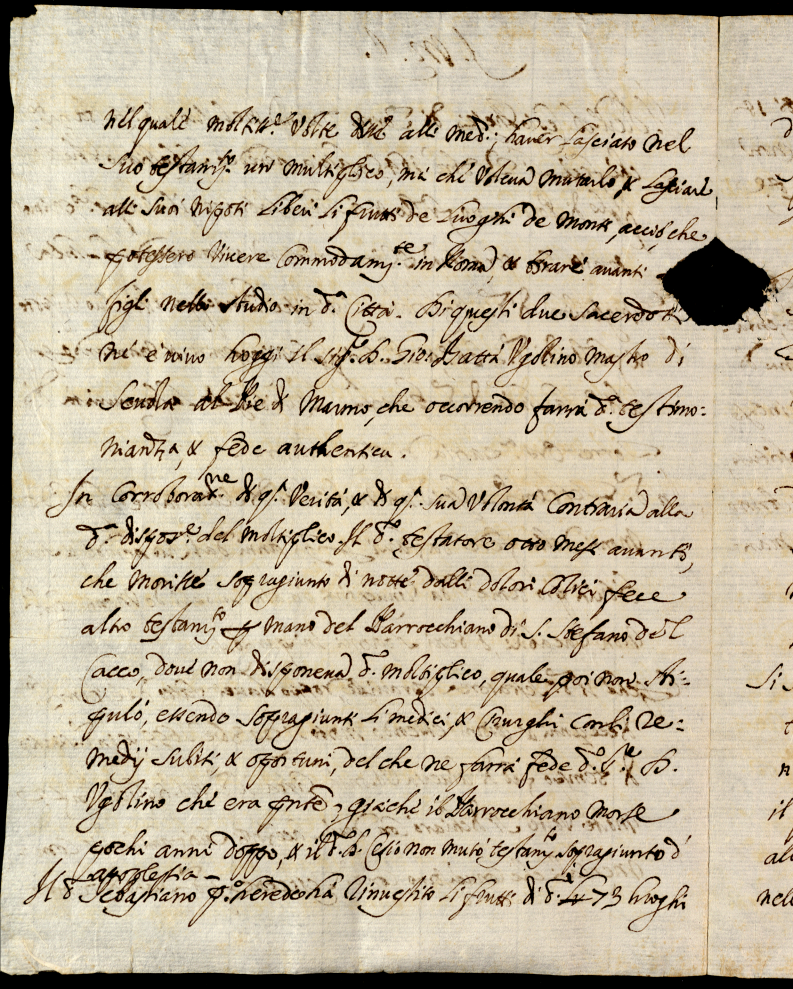 nel quale molte volte disse alli med.i haver lasciato nel
suo testam.to un multiplico, mà che voleva mutarlo, & lasciare
alli suoi nipoti liberi li frutti de luoghi de monti, acciò che
potessero vivere commodam.te in Roma, & tirare avanti
figli nelli studio in d.a Città. Di questi due sacerdoti
né è vivo hoggi il Sig.r D. Gio: Batta Ugolino mastro di
scuola al Piè di Marmo, che occorrendo farrà d.a testimo:
nianza, & fede authentica.
In corroborat.ne di q.a verità, & di q.a sua volontà contraria alla
d.a dispos.e del moltiplico. Il d.o testatore otto mesi avanti,
che morisse sopragiunto di notte dalli dolori colici fece
altro testam.to p mano del Parrocchiano di S. Stefano del
Cacco, dove non disponeva d.o moltiplico, quale poi non sti:
pulò, essendo sopragiunti li medici, & cirurghi con li re:
medij subiti, & oportuni, del che ne farrà fede d.o S.re D.
Ugolino che era pnte, giachè il Parrocchiano morse
pochi anni doppo, & il d.o D. Cesio non mutò testam.to sopragiunto d
apoplesia
Il d.o Sebastiano p.o herede hà rinvestito li frutti di d.i 473 luoghi